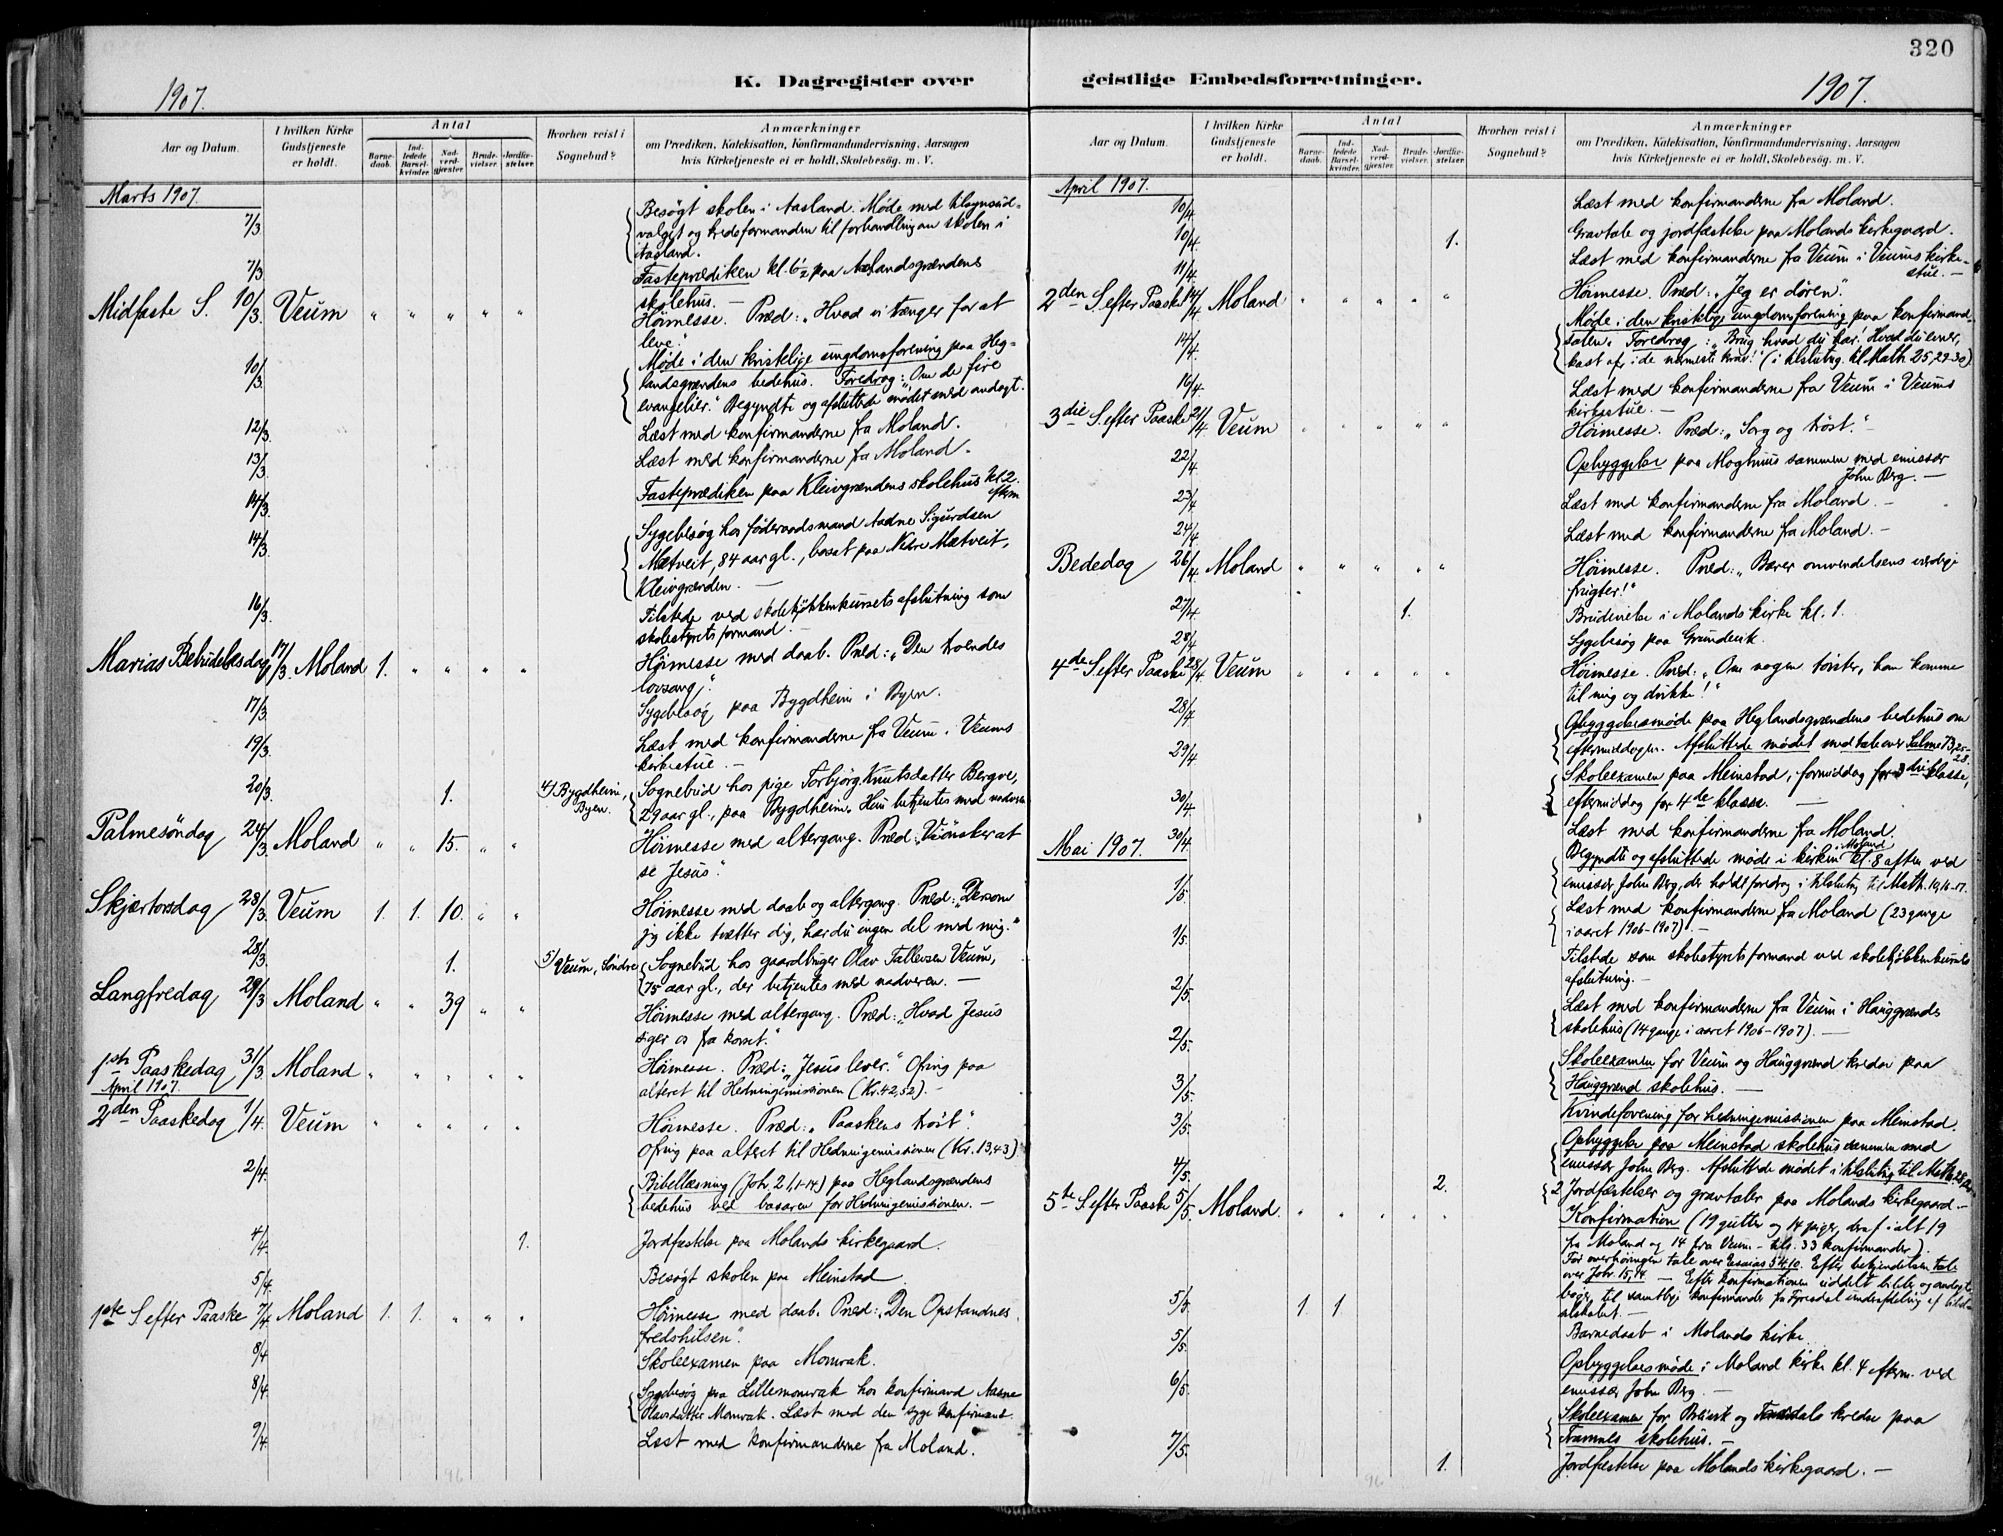 320
K. Dagregister over
geistlige Embedsforretninger.
1907.
1907.
Aar og Datum.
I hvilken Kirke
Gudstjeneste
er holdt.
Antal
Barne-
daab.
Ind-
ledede
Barsel-
kvinder.
Nad-
verd-
gjæster.
Brude-
vielser.
Jordfæ-
stelser.
Hvorhen reist i
Sognebud?
Anmærkninger
om Prædiken, Katekisation, Konfirmandundervisning, Aarsagen
hvis Kirketjeneste ei er holdt, Skolebesøg. m. V.
Marts 1907.
7/3 Besøgt skolen i Aasland. Møde med tilsynsud-
valget og kredsformanden til forhandling om skolen i
Aasland.
7/3 Fasteprædiken kl. 6½ paa Aaslandsgrændens
skolehus. —
Midfaste S. 10/3. Veum " " " " " Høimesse. Præd: „Hvad vi trænger for at
leve."
10/3. Møde i den kristelige ungdomsforening paa Heg-
landsgrændens bedehus. Foredrag: „Om de fire
evangelier." Begyndte og afsluttede mødet med andagt.
12/3. Læst med konfirmanderne fra Moland.
13/3. Læst med konfirmanderne fra Moland.
14/3. Fasteprædiken paa Kleivgrændens skolehus kl. 2
efterm
14/3. Sygebesøg hos føderaadsmand Aadne Sigurdsen
Mætveit, 84 aar gl., bosat paa Nedre Mætveit,
Kleivgrænden. —
16/3. Tilstede ved skolekjøkkenkursets afslutning som
skolestyrets formand. —
Marias Bebudelsesdag 17/3. Moland 1. " " " " Høimesse med daab. Præd: „Den troendes
lovsang."
17/3. Sygebesøg paa Bygdheim i Byen.
19/3. Læst med konfirmanderne fra Veum i Veums
kirkestue. —
20/3. 1. 4/ Bygdheim,
Byen. Sognebud hos pige Torbjørg Knutsdatter Bergve,
29 aar gl., paa Bygdheim. Hun betjentes med nadveren
Palmesøndag 24/3. Moland " " 15. " " Høimesse med altergang. Præd: „Vi ønsker at
se Jesus".
Skjærtorsdag 28/3. Veum 1. 1. 10. " " Høimesse med daab og altergang. Præd: „Dersom
jeg ikke tvætter dig, har du ingen del med mig."
28/3. 1. 5/ Veum, Søndre Sognebud hos gaardbruger Olav Tallevsen Veum,
75 aar gl., der betjentes med nadveren. —
Langfredag 29/3 Moland " " 39 " " Høimesse med altergang. Præd: „Hvad Jesus
siger os fra korset."
1ste Paaskedag 31/3. Moland " " " " " Høimesse. Præd: „Jesus lever." Ofring paa
alteret til Hedningemissionen (Kr. 42,52). —
April 1907.
2den Paaskedag 1/4. Veum " " " " " Høimesse. Præd: „Paaskens trøst".
Ofring paa alteret til Hedningemissionen (Kr. 13,43)
2/4. Bibellæsning (Joh. 21,1-14) paa Heglandsgrændens
bedehus ved basaren for Hedningemissionen. —
4/4. 1. Jordfæstelse paa Molands kirkegaard.
5/4. Besøgt skolen paa Meinstad.
1ste S. efter Paaske 7/4 Moland 1. 1. " " " Høimesse med daab. Præd: „Den Opstandnes
fredshilsen".
8/4 Skoleexamen paa Momrak.
8/4. Sygebesøg paa Lillemomrak hos konfirmand Aasne
Olavsdatter Momrak. Læst med den syge konfirmand.
9/4. Læst med konfirmanderne fra Moland.
96
Aar og Datum.
I hvilken Kirke
Gudstjeneste
er holdt.
Antal
Barne-
daab.
Ind-
ledede
Barsel-
kvinder.
Nad-
verd-
gjæster.
Brude-
vielser.
Jordfæ-
stelser.
Hvorhen reist i
Sognebud?
Anmærkninger
om Prædiken, Katekisation, Konfirmandundervisning, Aarsagen
hvis Kirketjeneste ei er holdt, Skolebesøg. m. V.
April 1907.
10/4. Læst med konfirmanderne fra Moland.
10/4. 1. Gravtale og jordfæstelse paa Molands kirkegaard.
11/4. Læst med konfirmanderne fra Veum i Veums kirke-
stue. —
2den S. efter Paaske 14/4 Moland " " " " " Høimesse. Præd: „Jeg er døren".
14/4. Møde i den kristelige ungdomsforening paa konfirmand-
salen. Foredrag: „Brug hvad du har! Hvad du evner,
kast af i de nærmeste krav!" (i tilslutng. til Math. 25, 29-30)
16/4. Læst med konfirmanderne fra Veum i Veums
kirkestue. —
3die S. efter Paaske 21/4. Veum " " " " " Høimesse. Præd: „Sorg og trøst." —
22/4. Opbyggelse paa Moghuus sammen med emissær
John Berg. —
23/4. Læst med konfirmanderne fra Moland. —
24/4. Læst med konfirmanderne fra Moland. —
Bededag 26/4. Moland " " " " " Høimesse. Præd: „Bærer omvendelsens værdige
frugter!"
27/4. 1. Brudevielse i Molands kirke kl. 1.
28/4. Sygebesøg paa Grundevik.
4de S. efter Paaske 28/4. Veum " " " " " Høimesse. Præd: „Om nogen tørster, han komme
til mig og drikke!"
28/4. Opbyggelsesmøde paa Heglandsgrændens bedehus om
eftermiddagen. Afsluttede mødet med tale over Salme 73,25-
28.
29/4. Skoleexamen paa Meinstad, formiddag for 3die klasse,
eftermiddag for 4de klasse. —
30/4. Læst med konfirmanderne fra Moland.
30/4. Begyndte og afsluttede møde i kirken Moland kl. 8 aften ved
emissær John Berg, der holdt foredrag i tilslutng til Math. 19,16-17.
Mai 1907.
1/5. Læst med konfirmanderne fra Moland (23 gange
i aaret 1906-1907). —
1/5. Tilstede som skolestyrets formand ved skolekjøkkenkursets
afslutning. —
2/5. Læst med konfirmanderne fra Veum i Hauggrænds
skolehus (14 gange i aaret 1906-1907). —
2/5. Skoleexamen for Veum og Hauggrænd kredse paa
Hauggrænd skolehus. —
3/5. Kvindeforening for hedningemissionen paa Meinstad.
3/5. Opbyggelse paa Meinstad skolehus sammen med
emissær John Berg. Afsluttede mødet i tilslutng til Math.
4/5. 2. 2 Jordfæstelser og gravtaler paa Molands kirkegaard. —
5te S. efter Paaske 5/5. Moland. " " " " " Konfirmation (19 gutter og 14 piger, deraf i alt 19
fra Moland og 14 fra Veum - tils. 33 konfirmander).
Før overhøringen tale over Esaias 54,10. Efter bekjendelsen tale
over Joh. 15,14. — Efter konfirmationen uddelt bibler og andagts-
bøger til samtlige konfirmander fra Fyresdal underafdeling af bibel-
selskabet. —
5/5. 1 1 Barnedaab i Molands kirke.
5/5. Opbyggelsesmøde i Moland kirke kl. 4 efterm. ved
emissær John Berg. —
6/5. Skoleexamen for og kredse paa
skolehus. —
7/5. 1. Jordfæstelse paa Molands kirkegaard. —
96